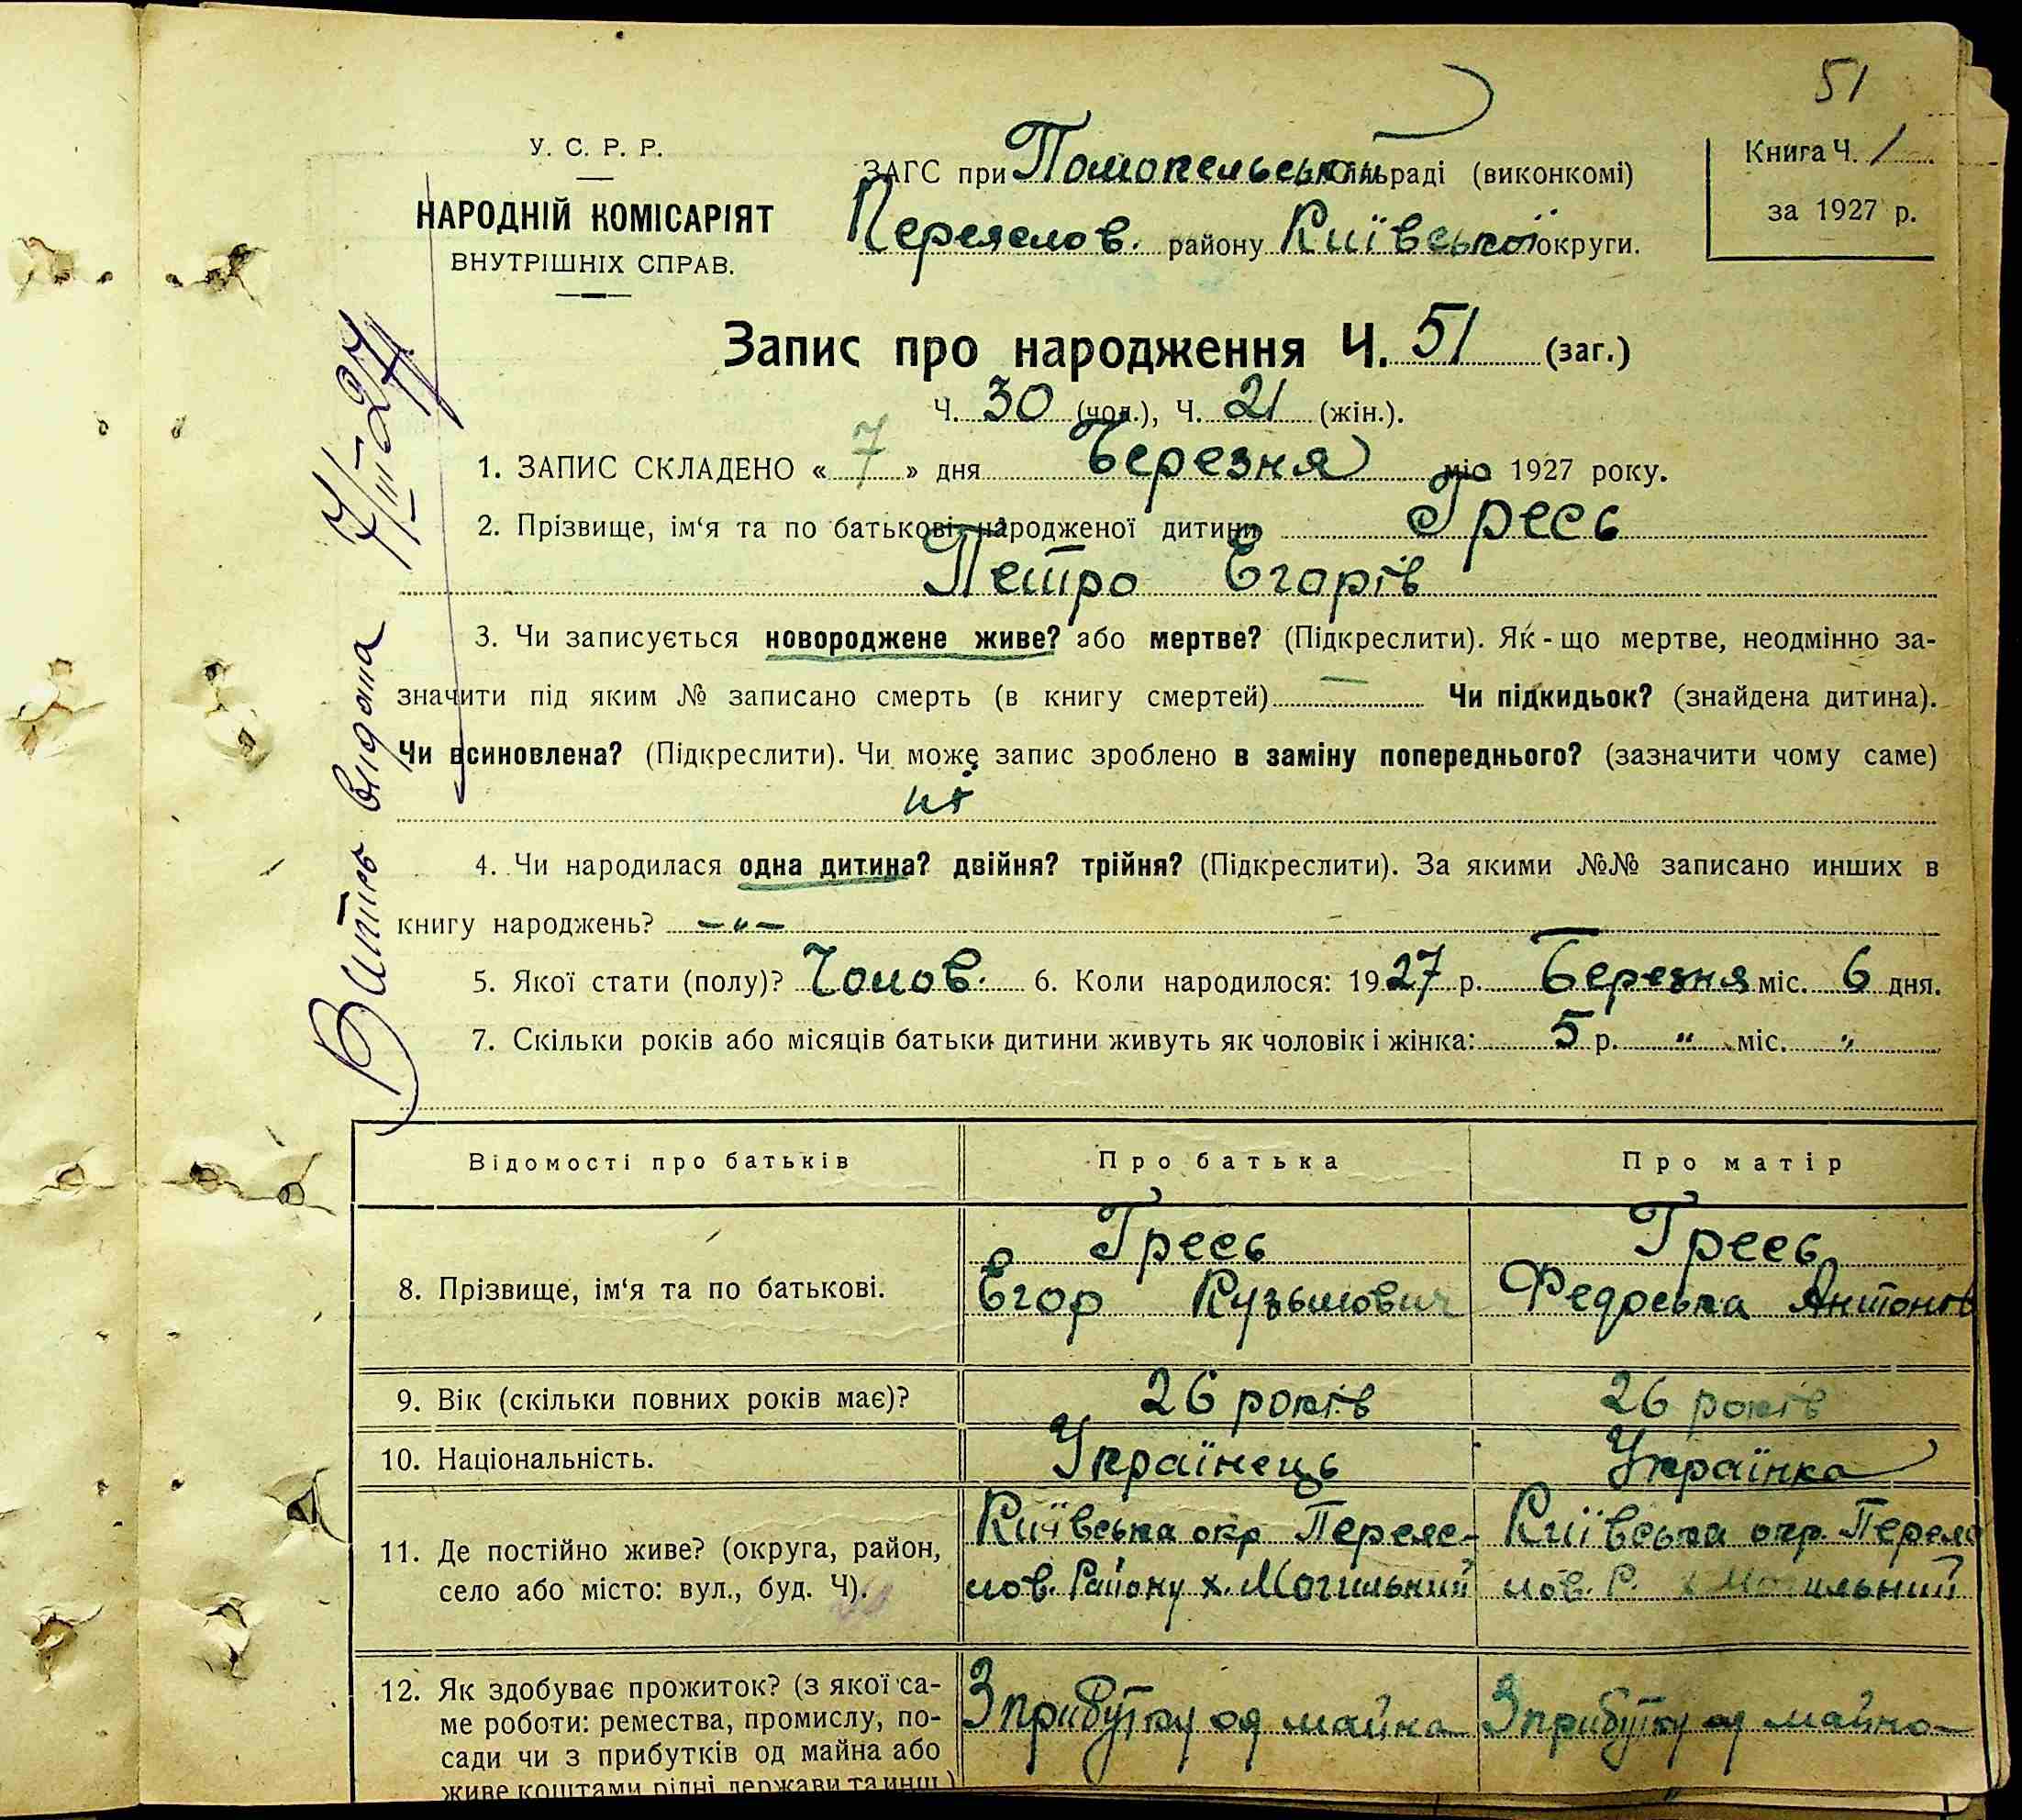 51
У. С. Р. Р.
НАРОДНІЙ КОМІСАРІЯТ
ВНУТРІШНІХ СПРАВ.
ЗАГС при Помокельській сільраді (виконкомі)
Переяслов. району Київської округи.
Книга Ч. 1
за 1927 р.
Запис про народження Ч. 51 (заг.)
Ч. 30 (чол.), Ч. 21 (жін.).
1. ЗАПИС СКЛАДЕНО « 7 » дня Березня міс 1927 року.
2. Прізвище, ім‘я та по батькові народженої дитини Гресь
Петро Єгорів
3. Чи записується новороджене живе? або мертве? (Підкреслити). Як-що мертве, неодмінно за-
значити під яким № записано смерть (в книгу смертей) — Чи підкидьок? (знайдена дитина).
Чи всиновлена? (Підкреслити). Чи може запис зроблено в заміну попереднього? (зазначити чому саме)
ні
4. Чи народилася одна дитина? двійня? трійня? (Підкреслити). За якими №№ записано инших в
книгу народжень? – " –
5. Якої стати (полу)? Чолов. 6. Коли народилося: 1927 р. Березня міс. 6 дня.
7. Скільки років або місяців батьки дитини живуть як чоловік і жінка: 5 р. " міс. "
Витяг видана 7/III-27
Відомості про батьків Про батька Про матір
8. Прізвище, ім‘я та по батькові.
Гресь
Єгор Кузьмович
Гресь
Федоська Антонів
9. Вік (скільки повних років має)? 26 років 26 років
10. Національність. Українець Українка
11. Де постійно живе? (округа, район,
село або місто: вул., буд. Ч).
Київська окр Переяс-
лов. Району х. Могильний
Київська окр. Перея
лов. Р. х Могильний
12. Як здобуває прожиток? (з якої са-
ме роботи: ремества, промислу, по-
сади чи з прибутків од майна або
живе коштами рідні держави та инш.)
З прибутку од майна
З прибутку од майна